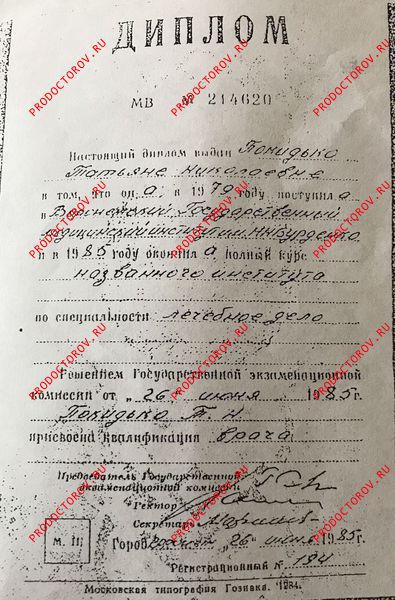 ДИПЛОМ
МВ № 214620
Настоящий диплом выдан Покидько
Татьяне Николаевне
в том, что она в 1979 году поступила
в Воронежский Государственный
медицинский институт им. Н.Н. Бурденко
и в 1985 году окончила полный курс
названного института
по специальности лечебное дело
Решением Государственной экзаменационной
комиссии от „26" июня 1985 г.
Покидько Т. Н.
присвоена квалификация врача
Председатель Государственной
экзаменационной комиссии
Ректор
Секретарь
М. П.
Город „26" июня 1985 г.
Регистрационный № 194
Московская типография Гознака. 1984.
PRODOCTOROV.RU